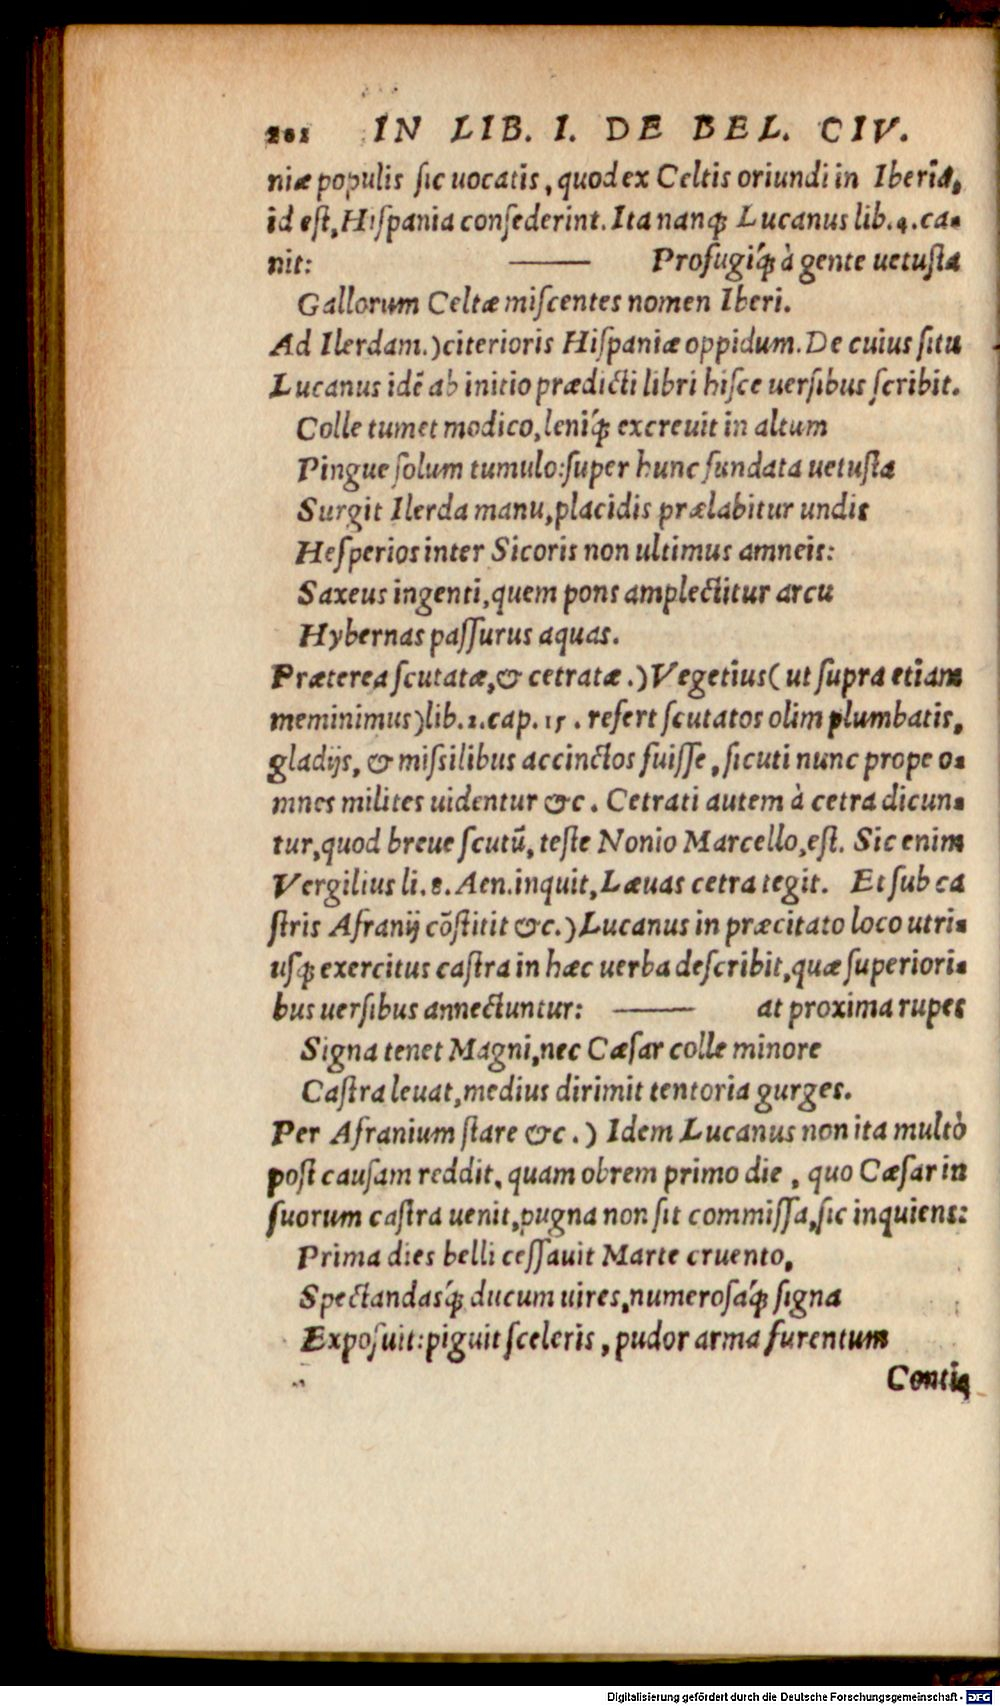 202 IN LIB. I. DE BEL. CIV.
niæ populis ſic uocatis, quod ex Celtis oriundi in Iberia,
id eſt, Hiſpania conſederint. Ita nanq́; Lucanus lib. 4. ca-
nit: —— Profugiq́; à gente uetuſta
Gallorum Celtæ miſcentes nomen Iberi.
Ad Ilerdam.) citerioris Hiſpaniæ oppidum. De cuius ſitu
Lucanus idē ab initio prædicti libri hiſce uerſibus ſcribit.
Colle tumet modico, leniq́; excreuit in altum
Pingue ſolum tumulo: ſuper hunc fundata uetuſta
Surgit Ilerda manu, placidis prælabitur undis
Heſperios inter Sicoris non ultimus amneis:
Saxeus ingenti, quem pons amplectitur arcu
Hybernas paſſurus aquas.
Præterea ſcutatæ, & cetratæ.) Vegetius (ut ſupra etiam
meminimus) lib. 2. cap. 15. refert ſcutatos olim plumbatis,
gladijs, & miſsilibus accinctos fuiſſe, ſicuti nunc prope o-
mnes milites uidentur &c. Cetrati autem à cetra dicun-
tur, quod breue ſcutū, teſte Nonio Marcello, eſt. Sic enim
Vergilius li. 8. Aen. inquit, Læuas cetra tegit. Et ſub ca
ſtris Afranij cōſtitit &c.) Lucanus in præcitato loco utri-
uſq; exercitus caſtra in hæc uerba deſcribit, quæ ſuperiori-
bus uerſibus annectuntur: —— at proxima rupes
Signa tenet Magni, nec Cæſar colle minore
Caſtra leuat, medius dirimit tentoria gurges.
Per Afranium ſtare &c.) Idem Lucanus non ita multò
poſt cauſam reddit, quam obrem primo die, quo Cæſar in
ſuorum caſtra uenit, pugna non ſit commiſſa, ſic inquiens:
Prima dies belli ceſſauit Marte cruento,
Spectandasq́; ducum uires, numeroſaq́; ſigna
Expoſuit: piguit ſceleris, pudor arma furentum
Conti-
Digitalisierung gefördert durch die Deutsche Forschungsgemeinschaft - DFG